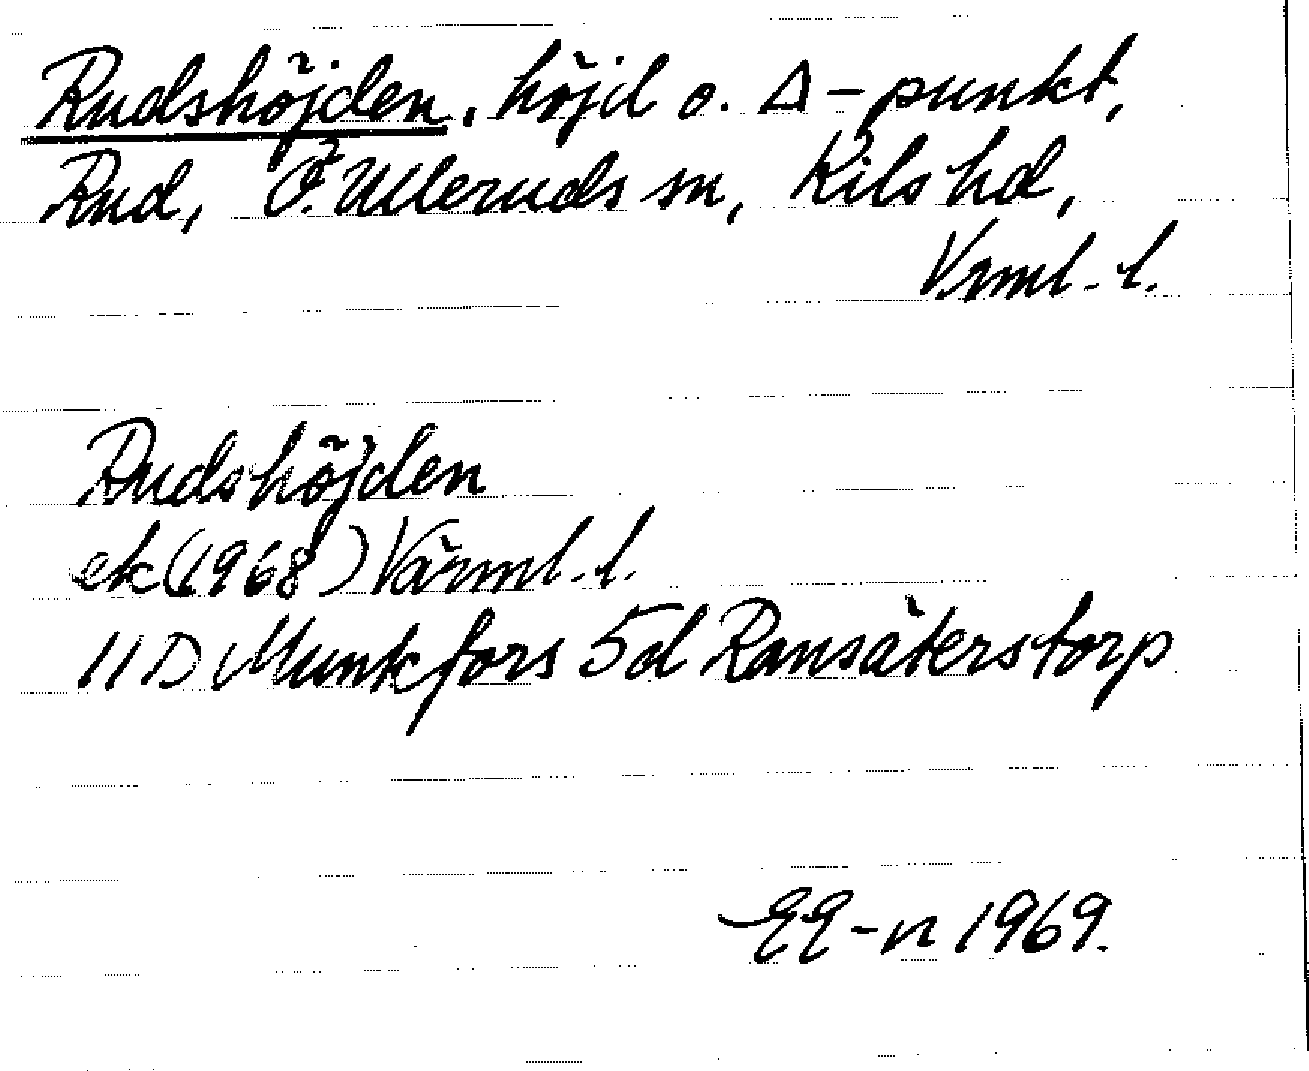 Rudshöjden, höjd o. Δ-punkt,
Rud, Ö. Ulleruds sn, Kils hd,
Vrml. l.
Rudshöjden
ek (1968) Värml. l.
11 D Munkfors 5d Ransäterstorp
1969.